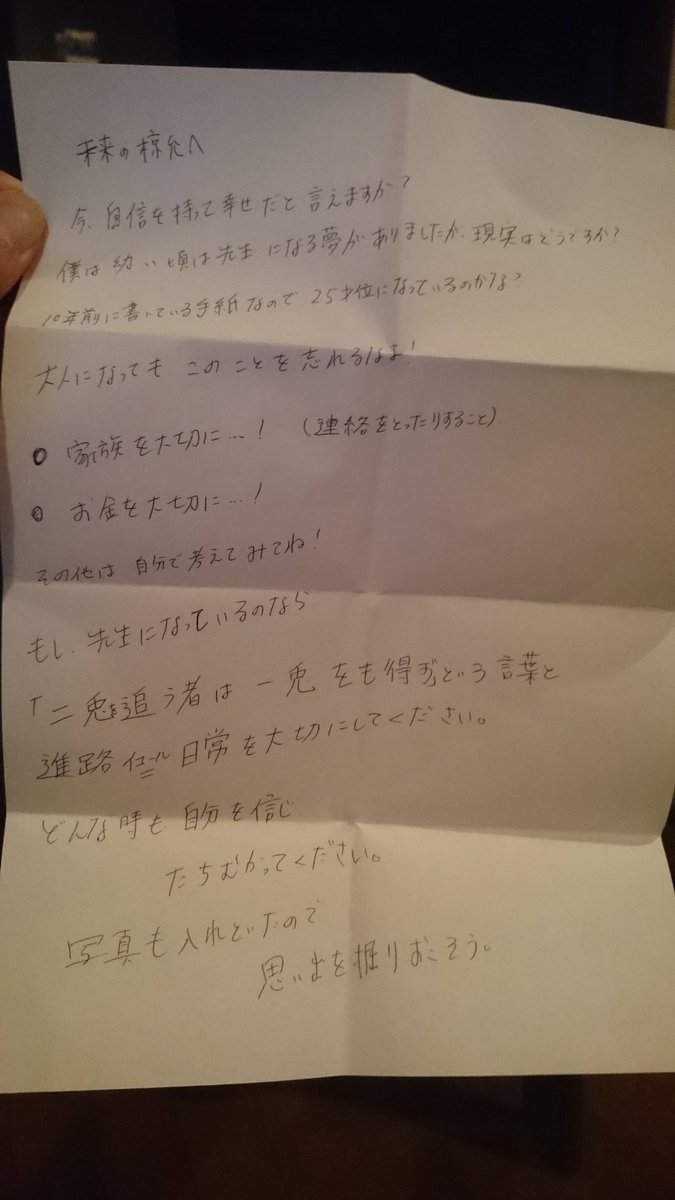 未来の椋允へ
今、自信を持って幸せだと言えますか?
僕は幼い頃は先生になる夢がありましたが、現実はどうですか?
10年前に書いている手紙なので25才位になっているのかな?
大人になってもこのことを忘れるなよ!
● 家族を大切に…! (連絡をとったりすること)
● お金を大切に…!
その他は自分で考えてみてね!
もし、先生になっているのなら
「二兎を追う者は一兎をも得ず」という言葉と
進路イコール日常を大切にしてください。
どんな時も自分を信じ
たちむかってください。
写真も入れといたので
思い出を掘りおこそう。